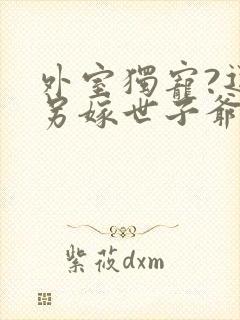 外室獨寵?
另嫁世子爺
紫莜dxm